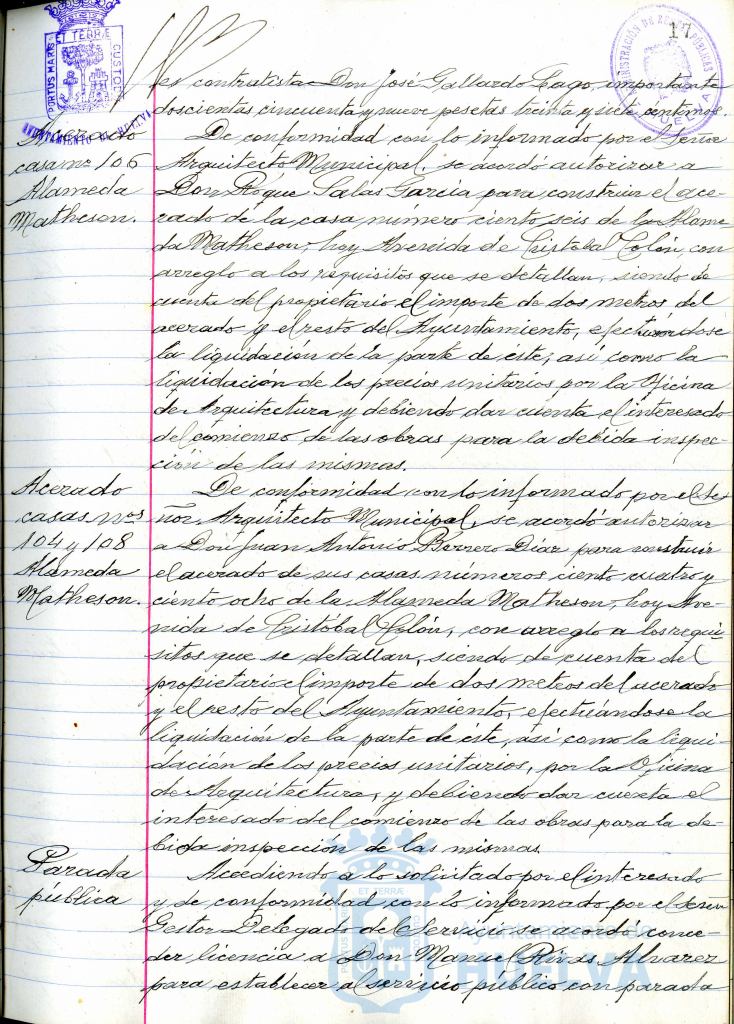 17
PORTUS MARIS
ET TERRÆ
CUSTODIA
AYUNTAMIENTO DE HUELVA
HUELVA
es contratista Don José Gallardo Lago, importante
doscientas cincuenta y nueve pesetas treinta y siete centimos.
Acerado
casa nº 106
Alameda
Matheson.
De conformidad con lo informado por el Señor
Arquitecto Municipal, se acordó autorizar a
Don Roque Salas García para construir el ace-
rado de la casa número ciento seis de la Alame-
da Matheson, hoy Avenida de Cristobal Colón, con
arreglo a los requisitos que se detallan, siendo de
cuenta del propietario el importe de dos metros del
acerado y el resto del Ayuntamiento, efectuandose
la liquidación de la parte de éste, así como la
liquidación de los precios unitarios por la Oficina
de Arquitectura y debiendo dar cuenta el interesado
del comienzo de las obras para la debida inspec-
ción de las mismas.
Acerado
casas nos
104 y 108
Alameda
Matheson.
De conformidad con lo informado por el Se-
ñor Arquitecto Municipal, se acordó autorizar
a Don Juan Antonio Borrero Díaz para construir
el acerado de sus casas números ciento cuatro y
ciento ocho de la Alameda Matheson, hoy Ave-
nida de Cristobal Colón, con arreglo a los requi-
sitos que se detallan, siendo de cuenta del
propietario el importe de dos metros del acerado
y el resto del Ayuntamiento, efectuándose la
liquidación de la parte de éste, así como la liqui-
dación de los precios unitarios, por la Oficina
de Arquitectura, y debiendo dar cuenta el
interesado del comienzo de las obras para la de-
bida inspección de las mismas.
Parada
pública
Accediendo a lo solicitado por el interesado
y de conformidad con lo informado por el Señor
Gestor Delegado de Servicio se acordó conce-
der licencia a Don Manuel Rivas Alvarez
para establecer al servicio público con parada
Ayuntamiento de
HUELVA